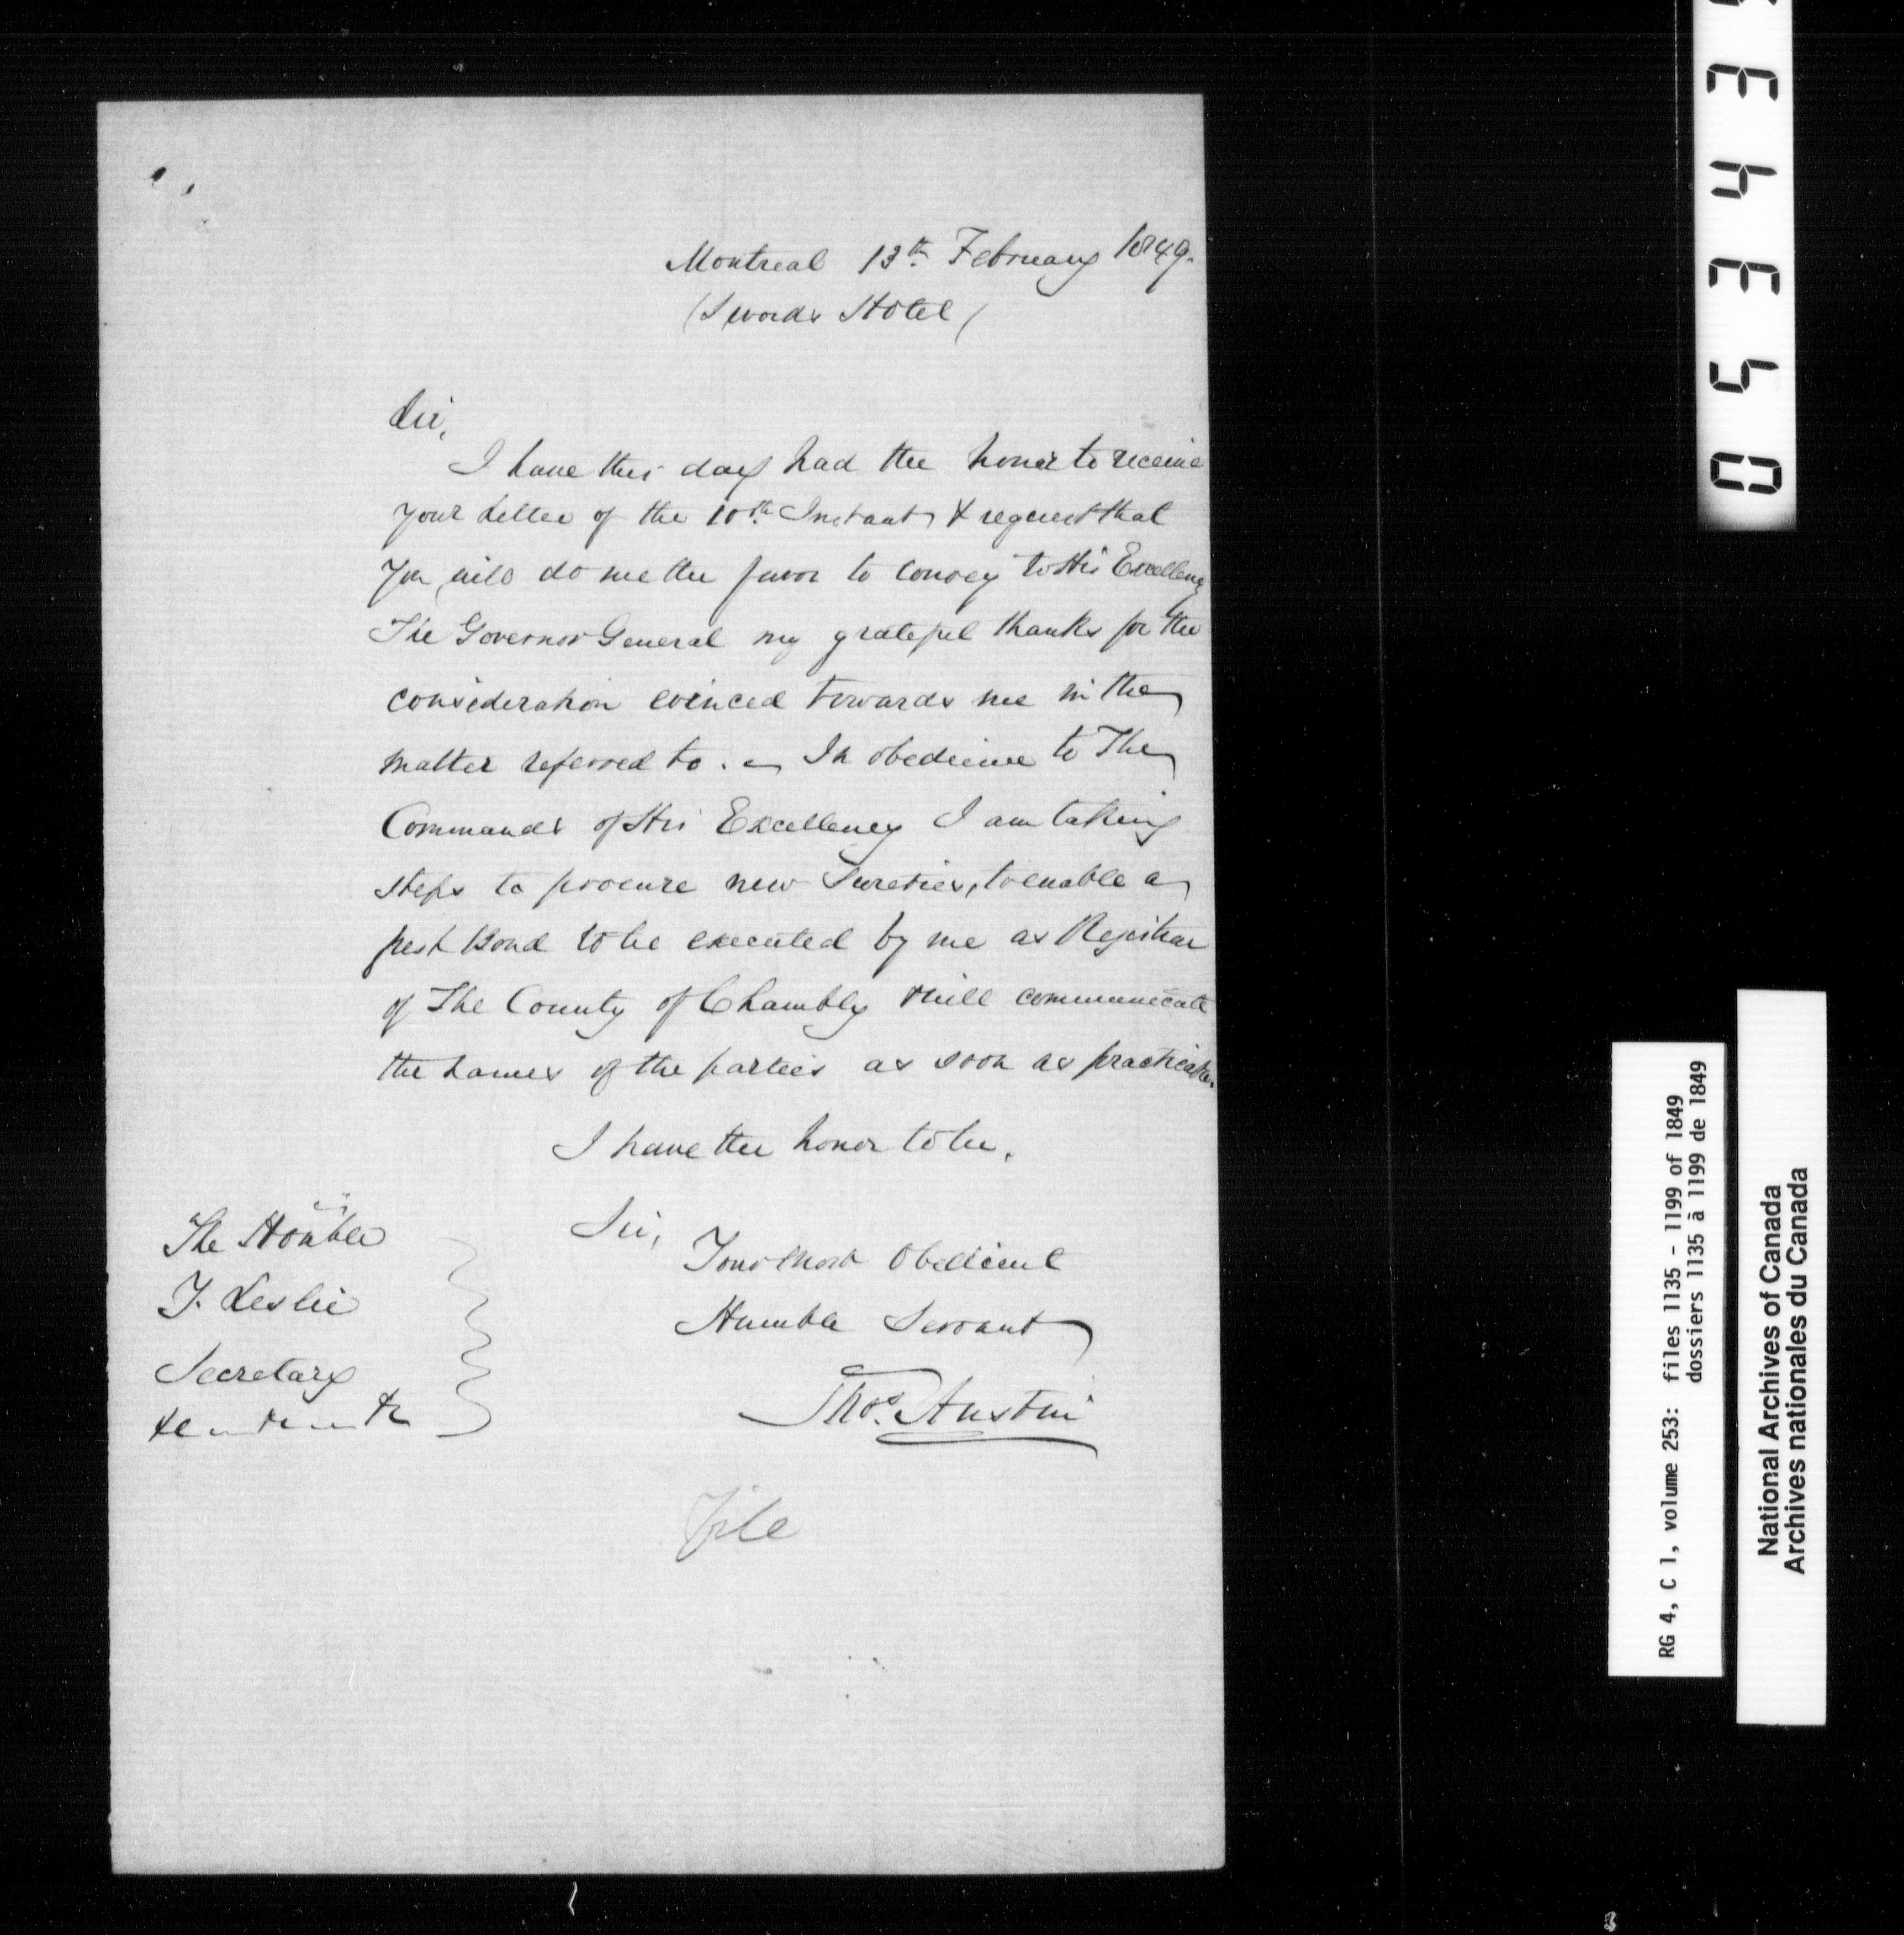 Montreal 13th February 1849.
(Swords Hotel)
Sir,
I have this day had the honor to receive
your Letter of the 10th Instant & request that
you will do me the favor to convey to His Excellency
The Governor General my grateful thanks for the
consideration evinced towards me in the
matter referred to. In obedience to The
Commands of His Excellency I am taking
steps to procure new Sureties, to enable a
fresh Bond to be executed by me as Registrar
of The County of Chambly & will communicate
the names of the parties as soon as practicable.
I have the honor to be,
Sir,
Your most Obedient
Humble Servant
Thos. Austin
The Honble
J. Leslie
Secretary
&c &c &c
File
0 5 4 3 4 3
RG 4, C 1, volume 253: files 1135 - 1199 of 1849
dossiers 1135 à 1199 de 1849
National Archives of Canada
Archives nationales du Canada